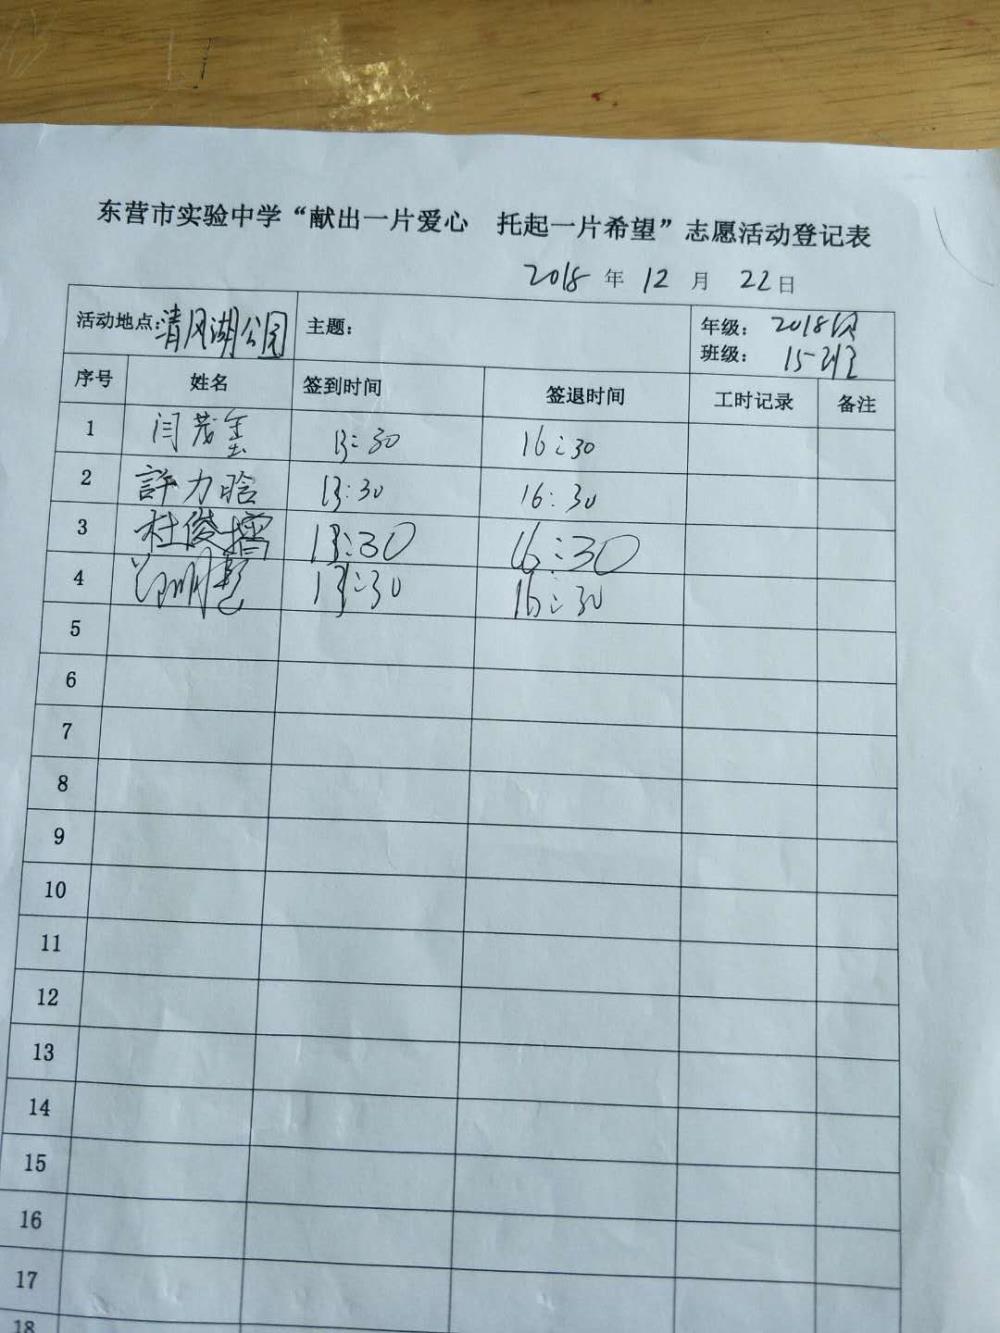 东营市实验中学“献出一片爱心 托起一片希望”志愿活动登记表
2018 年 12 月 22 日
活动地点：清风湖公园 主题： 年级： 2018级
班级： 15班
序号 姓名 签到时间 签退时间 工时记录 备注
1 闫茂 13:30 16:30
2 許力晗 13:30 16:30
3 杜俊 13:30 16:30
4 13:30 16:30
5
6
7
8
9
10
11
12
13
14
15
16
17
18